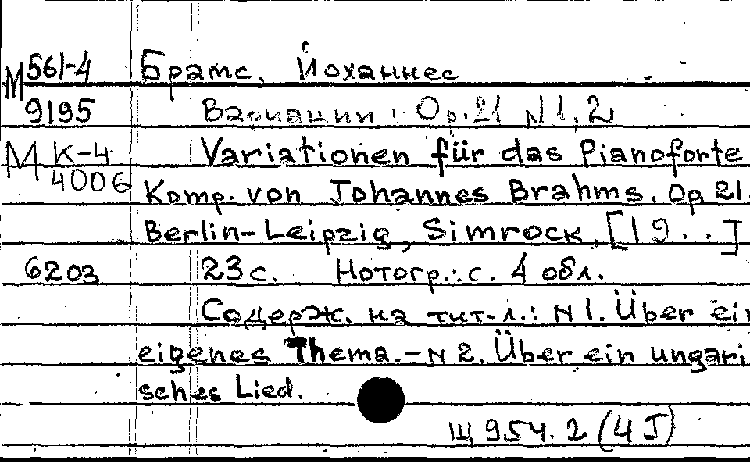 М 561-4 Брамс, Йоханнес
9195 Вариации. Op.21 N1,2
М К-4 Variationen für das Pianoforte
4006 Komp. von Johannes Brahms. Op 21.
Berlin-Leipzig, Simrock, [19..]
6203 23 с. Нотогр.: с. 4 обл.
Содерж. на тит. л.: N1. Über ein
eigenes Thema.-N2. Über ein ungari
sches Lied.
Щ 954.2 (4 J)